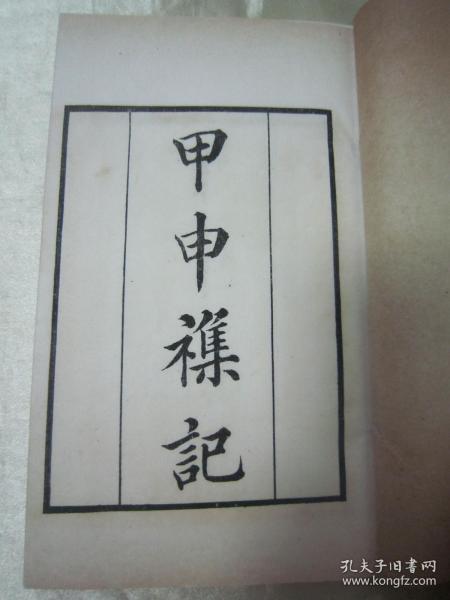 甲申襍記
孔夫子旧书网
www.kongfz.com